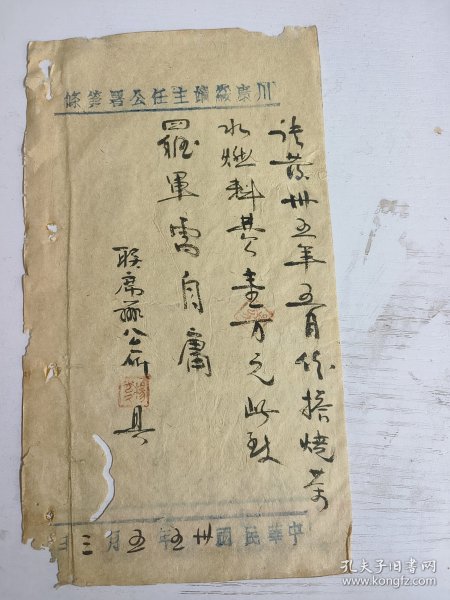 川東綏靖主任公署箋條
請發卅五年五月份擔燒茶
水燃料費壹万元此致
羅軍需自庸
聯席辦公所 具
中華民國卅五年五月三日
孔夫子旧书网
book.kongfz.com